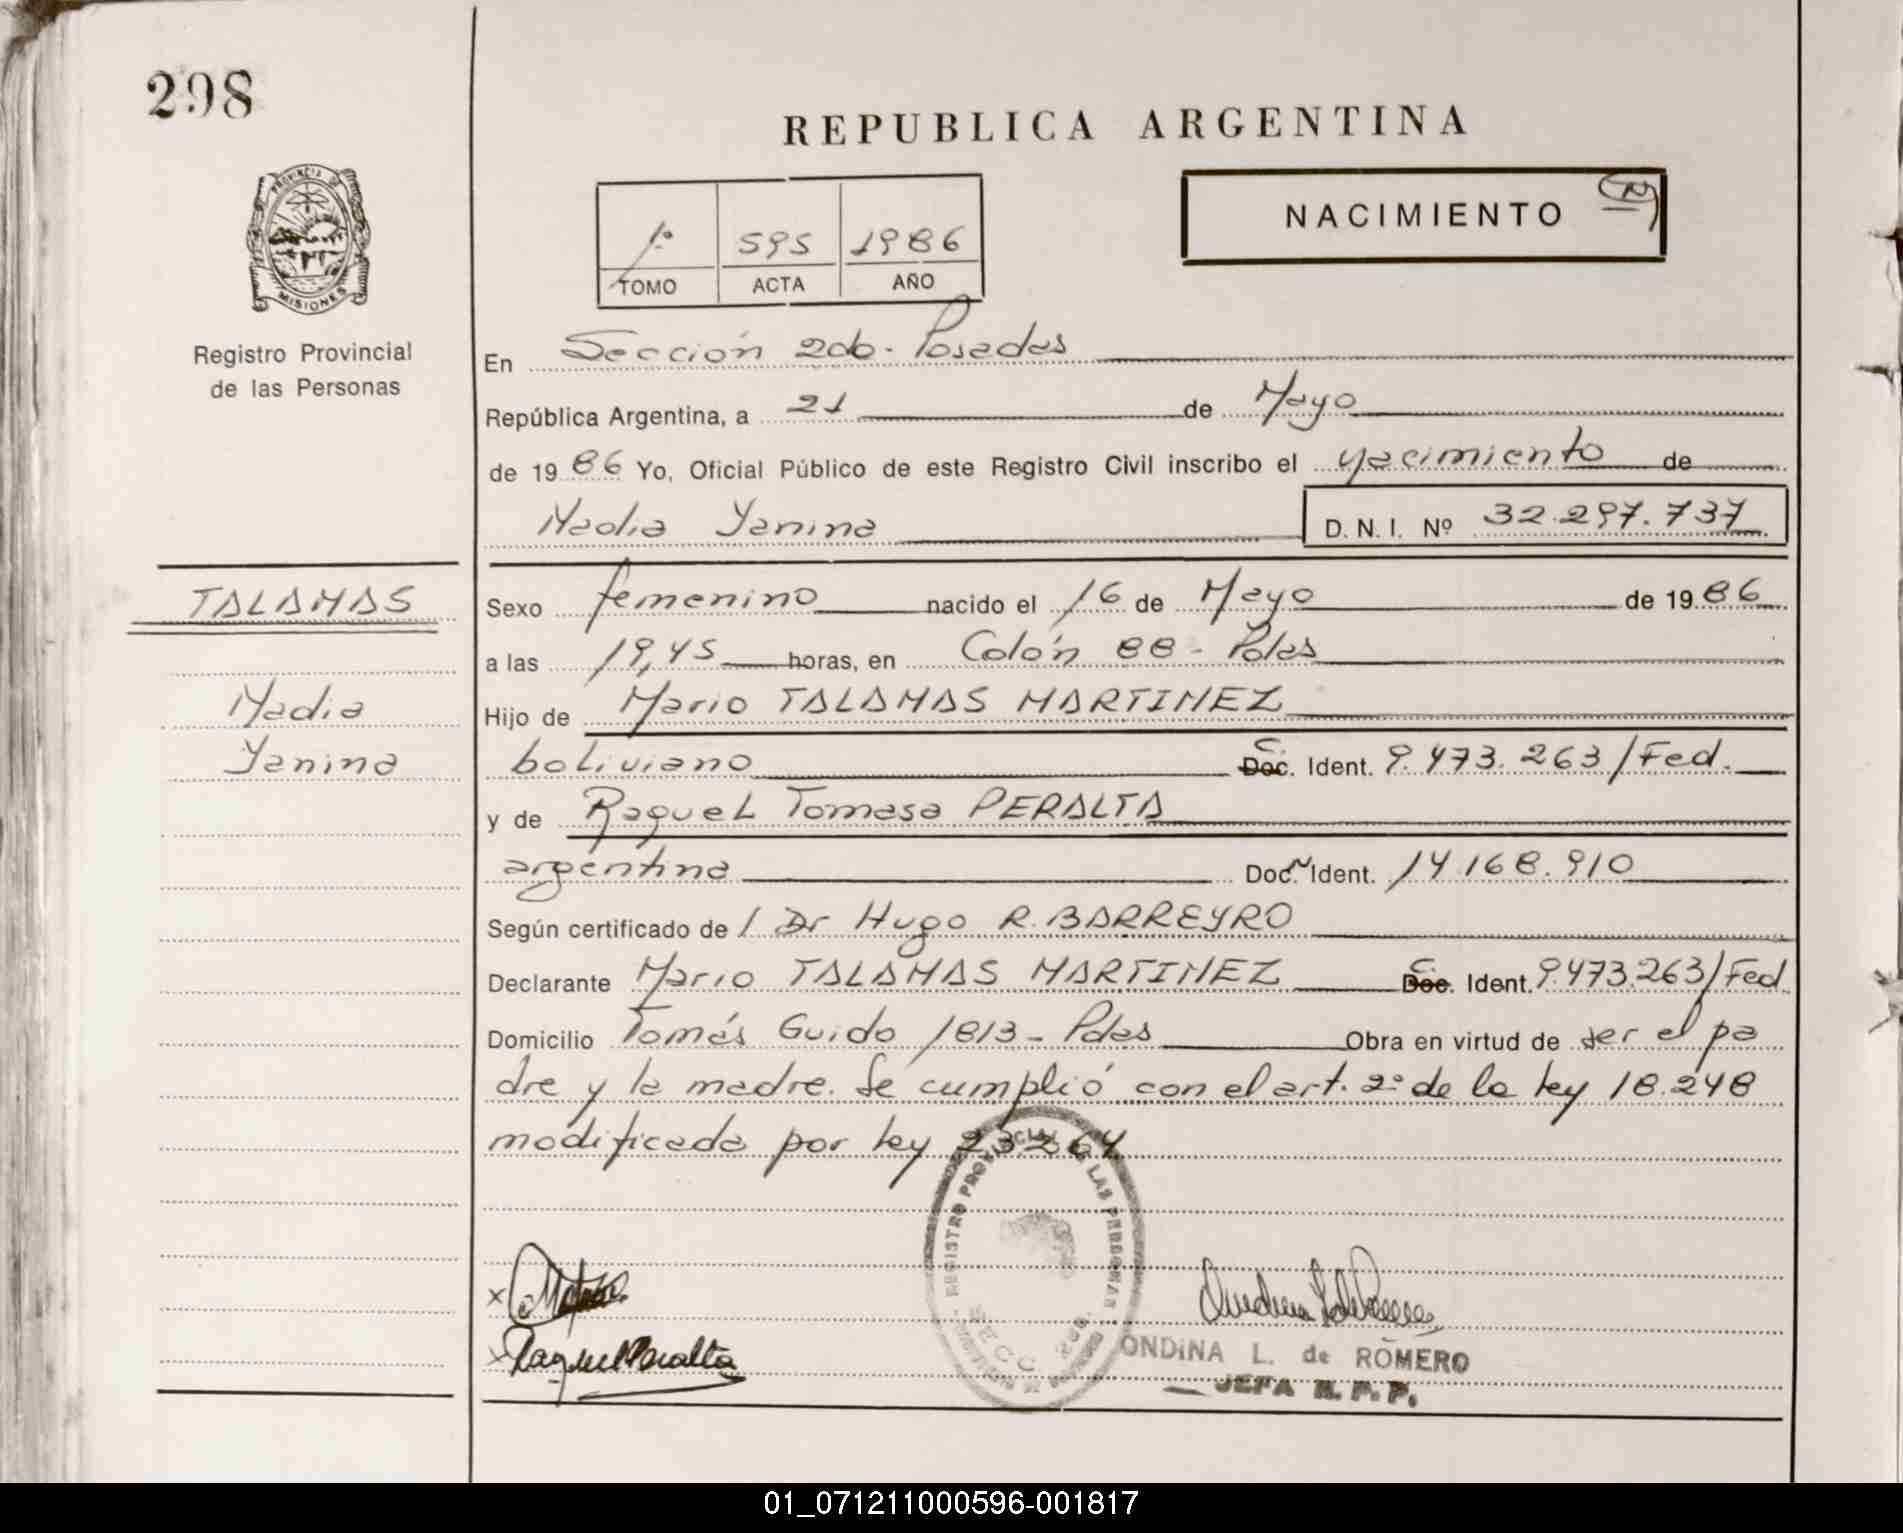 298
REPUBLICA ARGENTINA
PROVINCIA DE
MISIONES
Registro Provincial
de las Personas
1º 595 1986
TOMO ACTA AÑO
NACIMIENTO
En Sección 2da. Posadas
República Argentina, a 21 de Mayo
de 1986 Yo, Oficial Público de este Registro Civil inscribo el nacimiento de
Nadia Yanina D. N. I. Nº 32.297.737
TALAMAS
Nadia
Yanina
Sexo femenino nacido el 16 de Mayo de 1986
a las 19,45 horas, en Colón 88 - Pdas
Hijo de Mario TALAMAS MARTINEZ
boliviano C. Doc. Ident. 9.473.263/Fed.
y de Raquel Tomasa PERALTA
argentina Doc. N Ident. 14.168.910
Según certificado de l Dr Hugo R. BARREYRO
Declarante Mario TALAMAS MARTINEZ C. Doc. Ident. 9.473.263/Fed
Domicilio Tomás Guido 1813 - Pdas Obra en virtud de ser el pa
dre y la madre. Se cumplió con el art. 2º de la ley 18.248
modificada por ley 23.264
REGISTRO PROVINCIAL DE LAS PERSONAS
SECC. 2da.
Raquel Peralta
ONDINA L. de ROMERO
JEFA R. P. P.
01_071211000596-001817